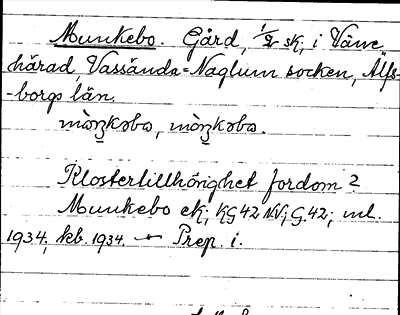 Munkebo. Gård, 1/2 sk, i Väne
härad, Vassända-Naglum socken, Älfs-
-borgs län.
Klostertillhörighet fordom?
Munkebo ek; KG 42 NV; G. 42; ml.
1934, kb. 1934. — Prep. i.